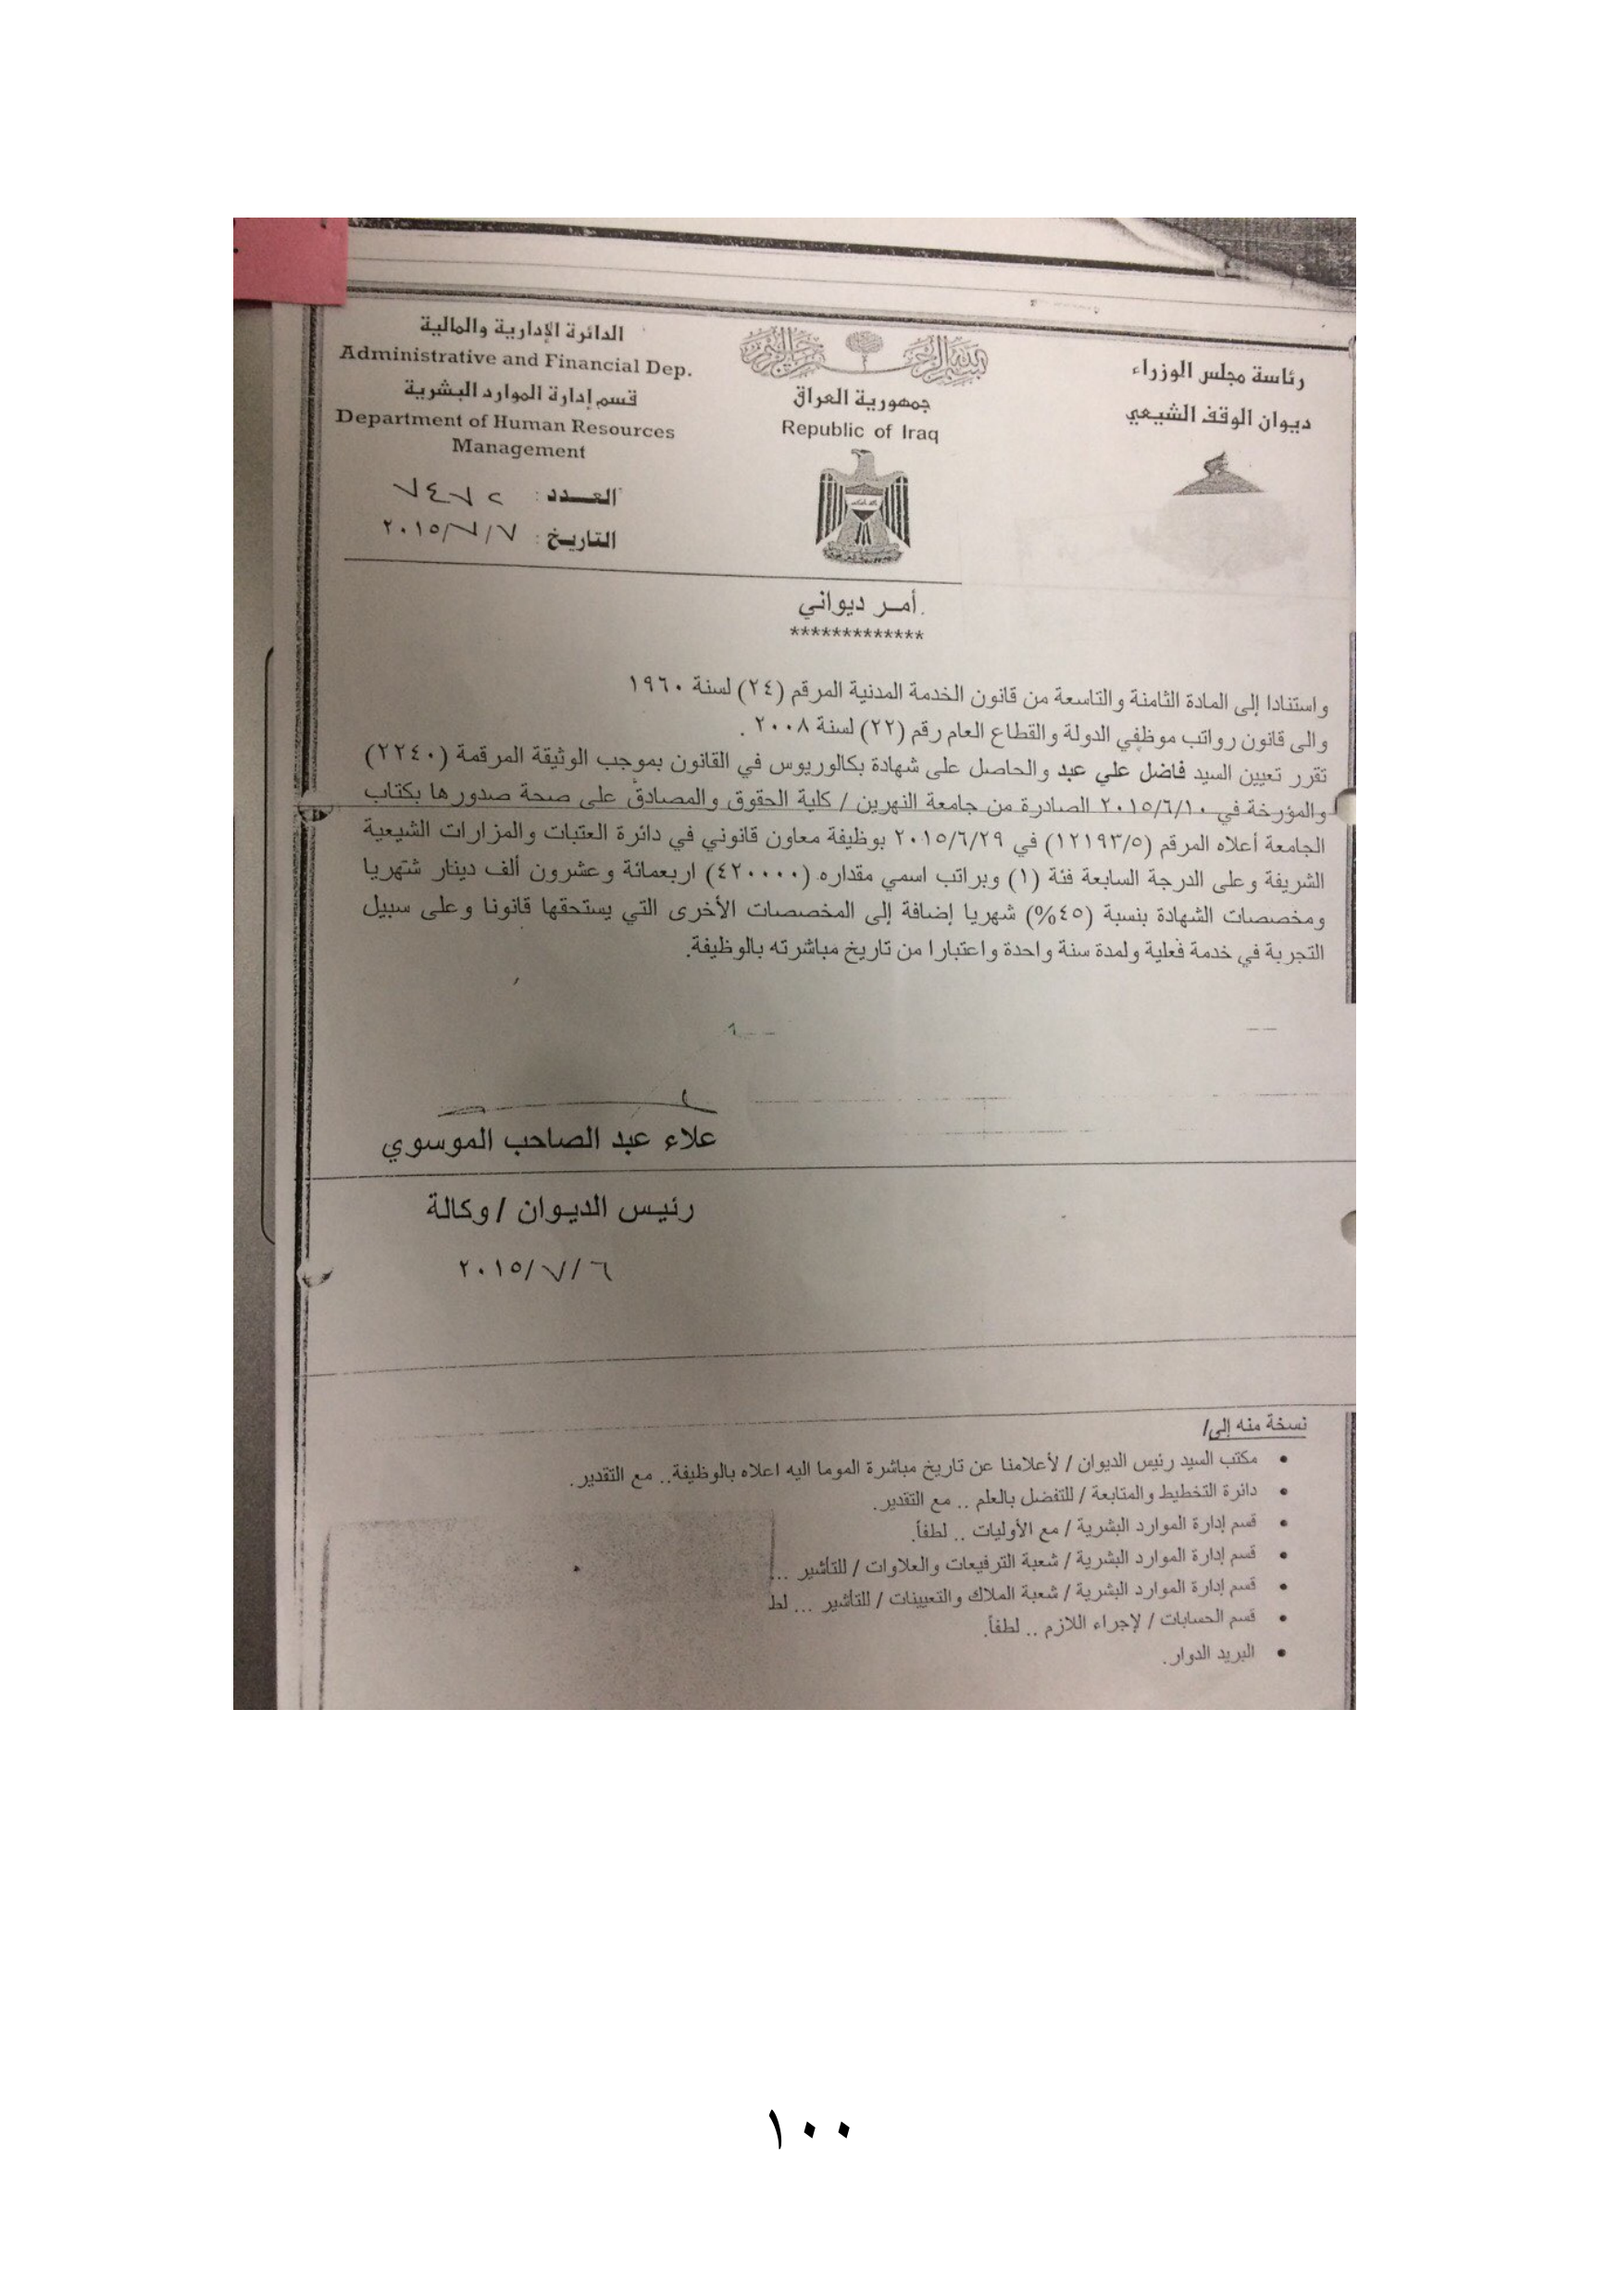 رئاسة مجلس الوزراء
ديوان الوقف الشيعي
بسم الله الرحمن الرحيم
جمهورية العراق
Republic of Iraq
الدائرة الإدارية والمالية
Administrative and Financial Dep.
قسم إدارة الموارد البشرية
Department of Human Resources
Management
العـــدد :
التاريـخ : ٢٠١٥/٧/٧
أمـر ديواني
*************
واستنادا إلى المادة الثامنة والتاسعة من قانون الخدمة المدنية المرقم (٢٤) لسنة ١٩٦٠
والى قانون رواتب موظفي الدولة والقطاع العام رقم (٢٢) لسنة ٢٠٠٨ .
تقرر تعيين السيد فاضل علي عبد والحاصل على شهادة بكالوريوس في القانون بموجب الوثيقة المرقمة (٢٢٤٠)
والمؤرخة في ٢٠١٥/٦/١٠ الصادرة من جامعة النهرين / كلية الحقوق والمصادق على صحة صدورها بكتاب
الجامعة أعلاه المرقم (١٢١٩٣/٥) في ٢٠١٥/٦/٢٩ بوظيفة معاون قانوني في دائرة العتبات والمزارات الشيعية
الشريفة وعلى الدرجة السابعة فئة (١) وبراتب اسمي مقداره (٤٢٠٠٠٠) اربعمائة وعشرون ألف دينار شهريا
ومخصصات الشهادة بنسبة (٤٥%) شهريا إضافة إلى المخصصات الأخرى التي يستحقها قانونا وعلى سبيل
التجربة في خدمة فعلية ولمدة سنة واحدة واعتبارا من تاريخ مباشرته بالوظيفة.
علاء عبد الصاحب الموسوي
رئيس الديوان / وكالة
٢٠١٥/٧/٦
نسخة منه إلى/
• مكتب السيد رئيس الديوان / لأعلامنا عن تاريخ مباشرة الموما اليه اعلاه بالوظيفة.. مع التقدير.
• دائرة التخطيط والمتابعة / للتفضل بالعلم .. مع التقدير.
• قسم إدارة الموارد البشرية / مع الأوليات .. لطفاً.
• قسم إدارة الموارد البشرية / شعبة الترفيعات والعلاوات / للتأشير ...
• قسم إدارة الموارد البشرية / شعبة الملاك والتعيينات / للتأشير ... لط
• قسم الحسابات / لإجراء اللازم .. لطفاً.
• البريد الدوار.
١٠٠